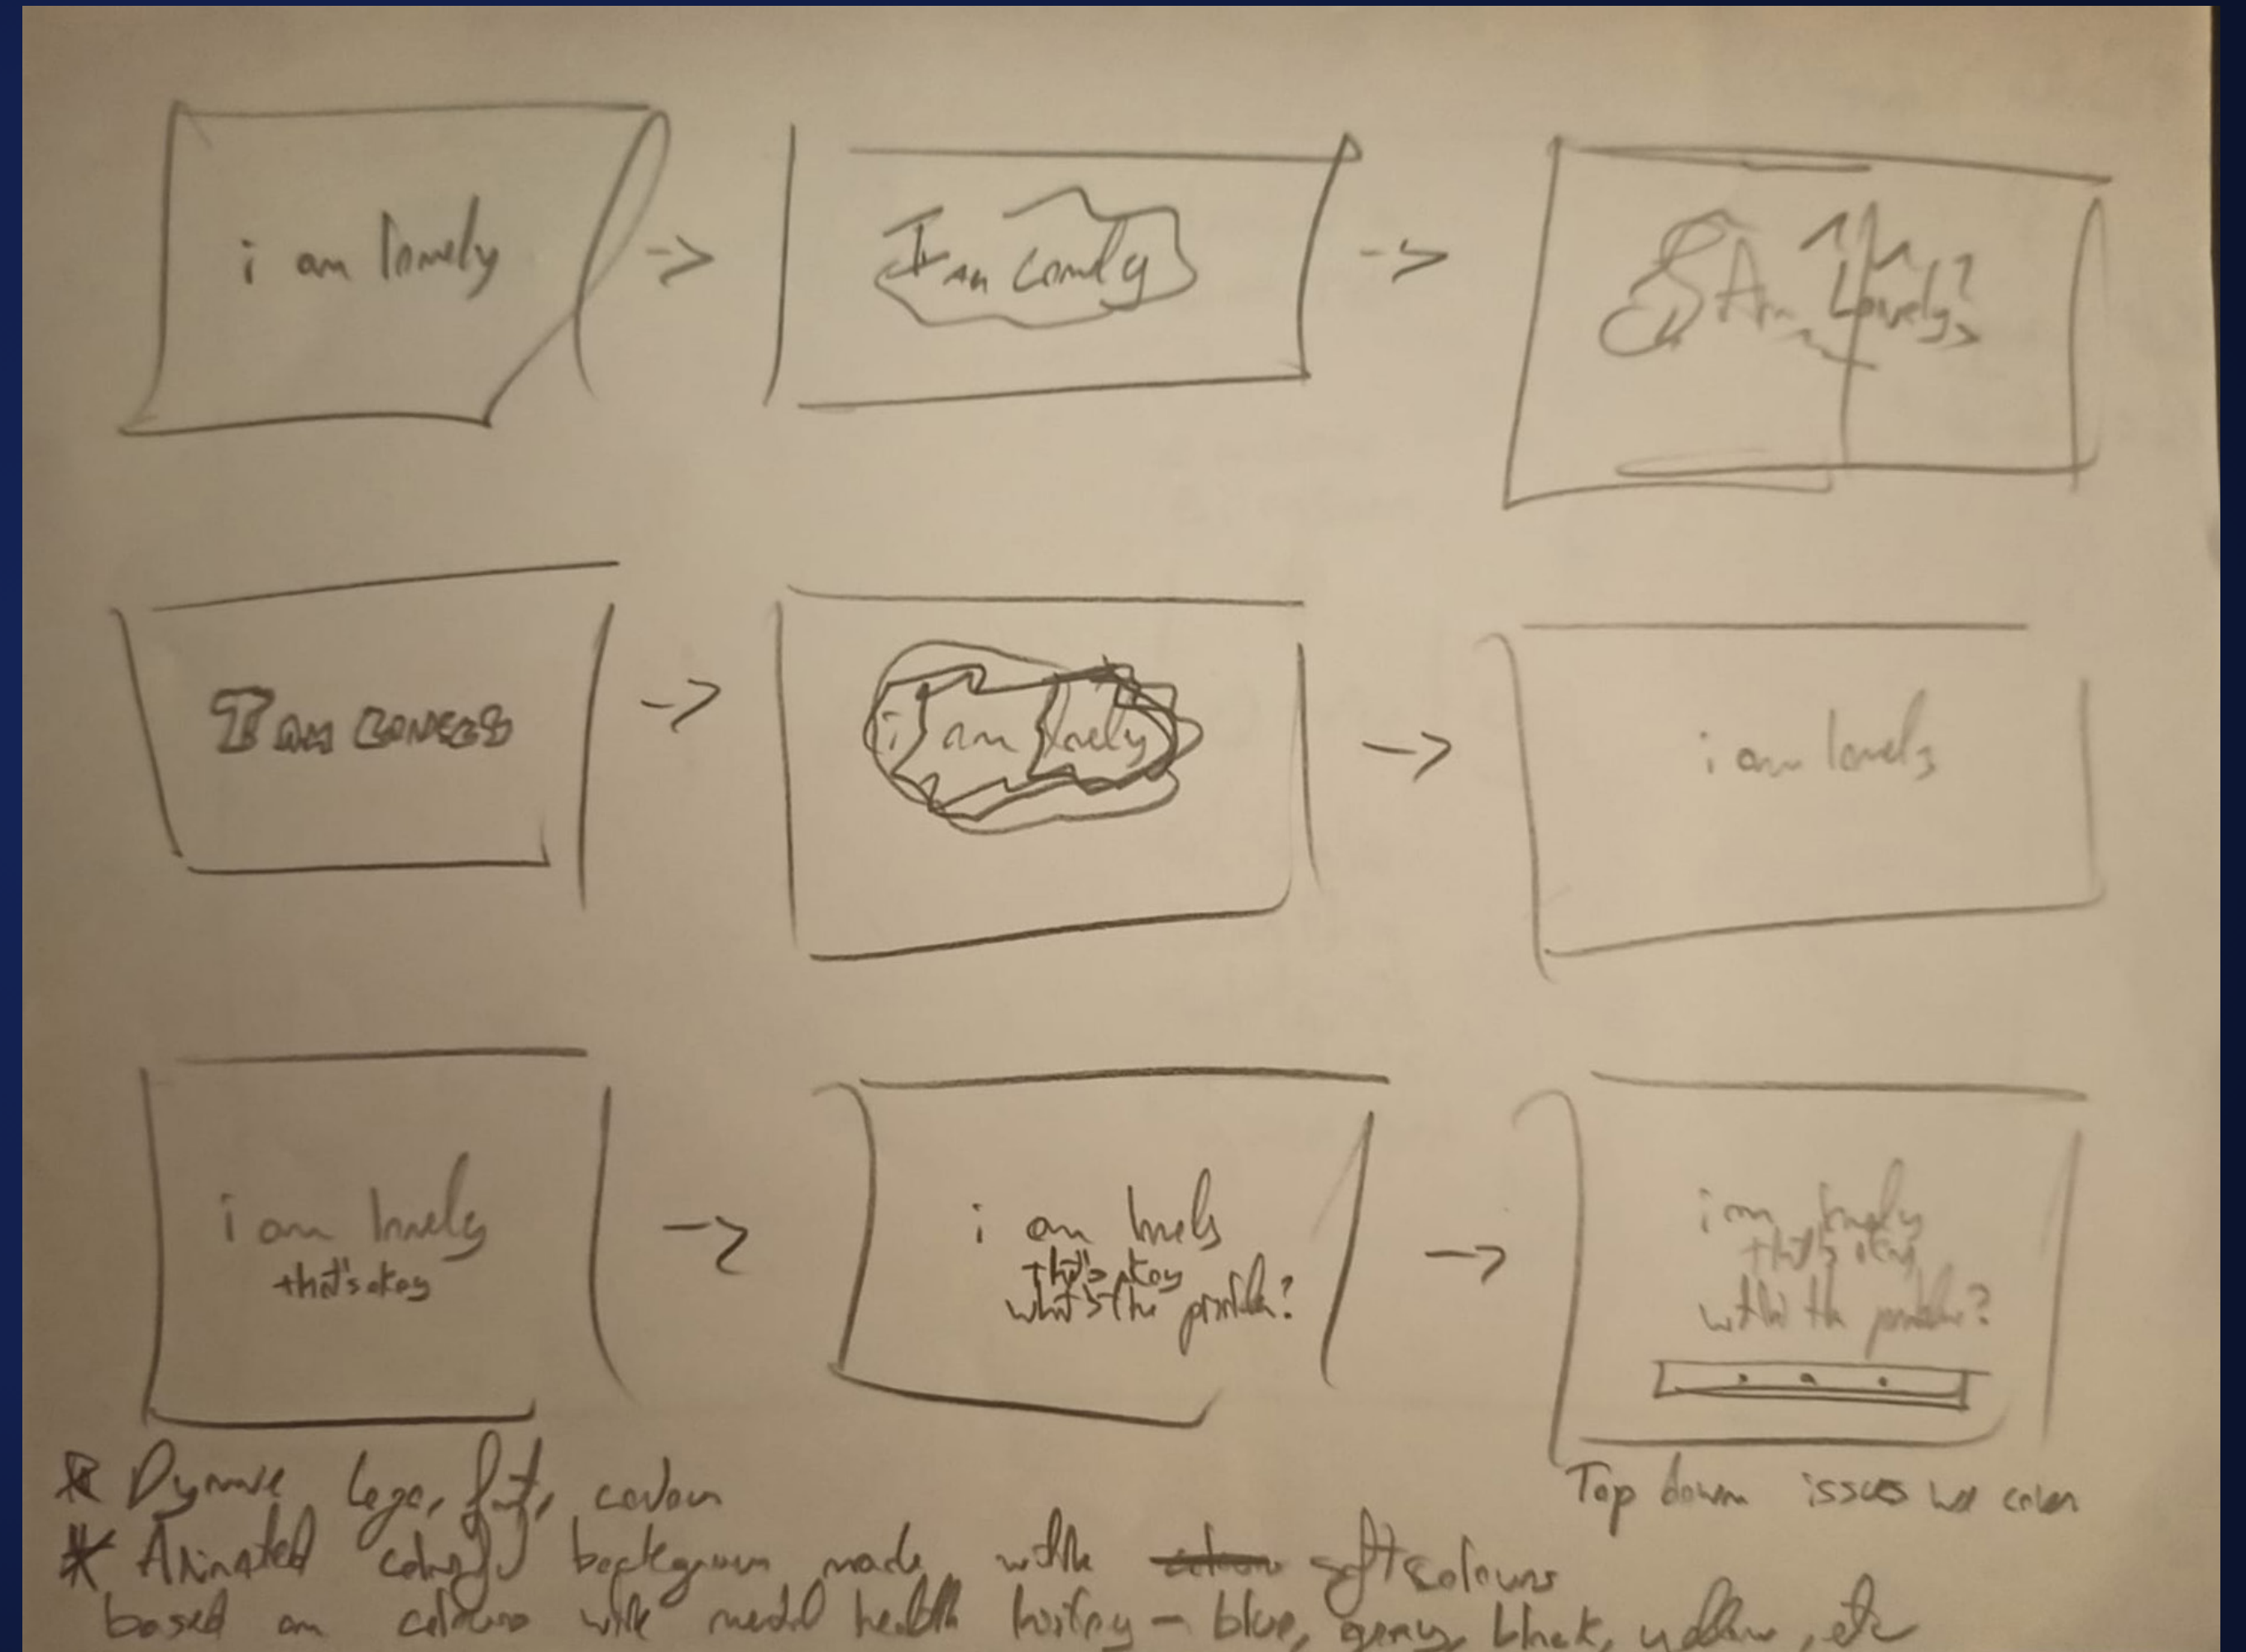 i am lonely
->
I am Lonely
->
I Am Lonely?
I am LONELY
->
i am lonely
->
i am lonely
i am lonely
that's okay
->
i am lonely
that's okay
what's the problem?
->
i am lonely
that's okay
what the problem?
Top down issues we cover
* Dynamic Logo, font, colour
* Animated background made with soft colours
based on colours with mental health history - blue, grey, black, yellow, etc